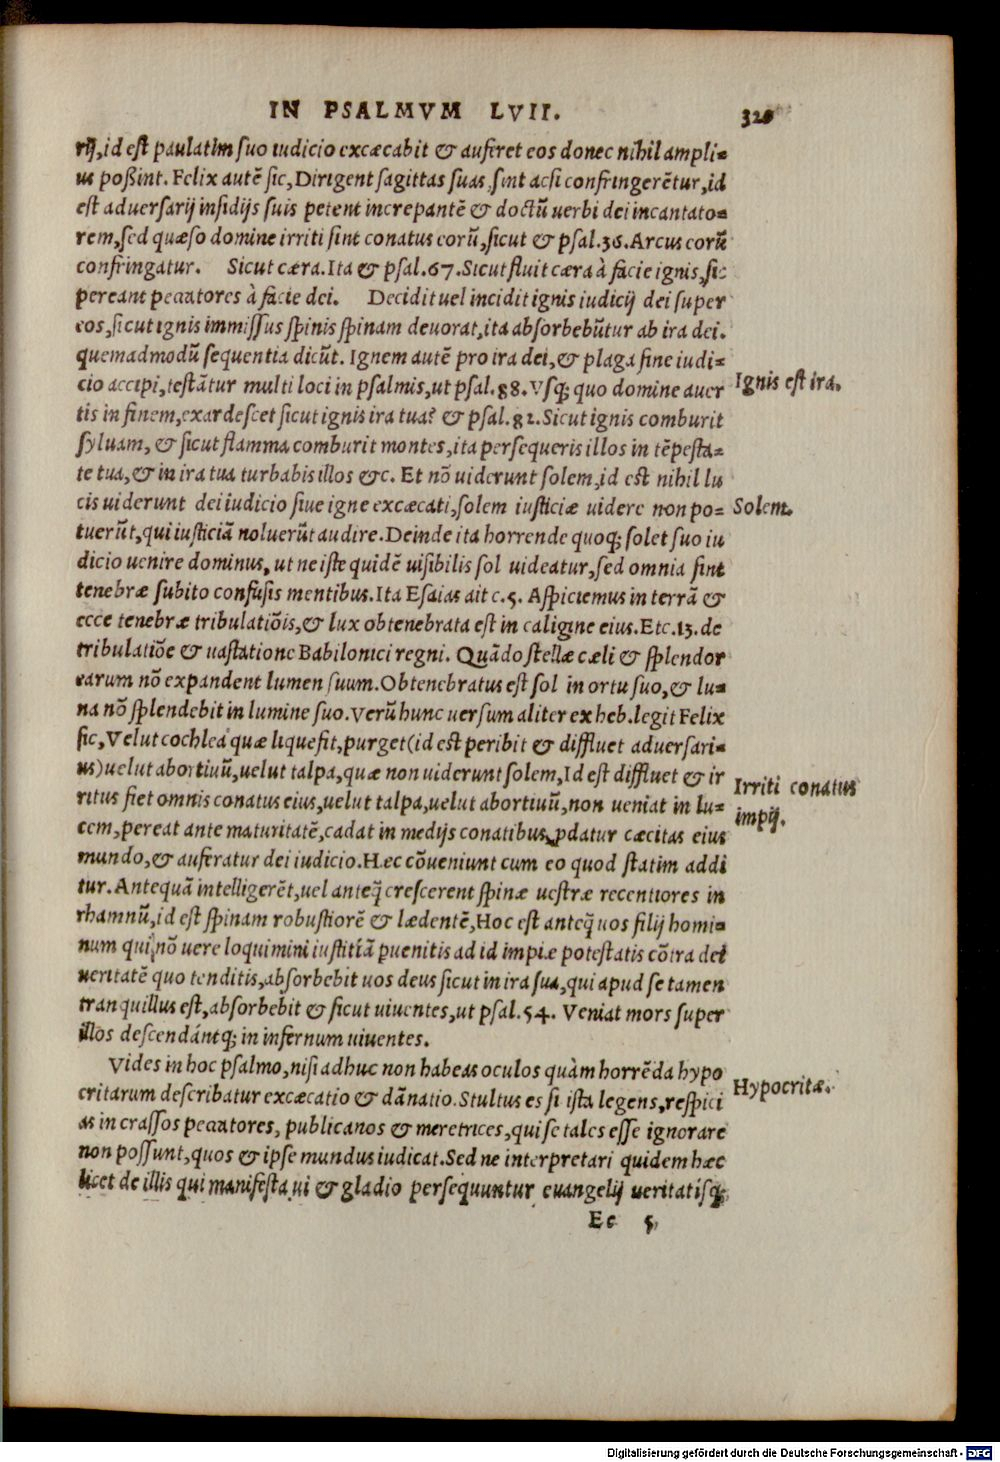 IN PSALMVM LVII.
rij, id est paulatim suo iudicio excæcabit & auferet eos donec nihil ampli=
us poßint. Felix autē sic, Dirigent sagittas suas, sint acsi confringerētur, id
est aduersarij insidijs suis petent increpantē & doctū uerbi dei incantato=
rem, sed quæso domine irriti sint conatus eorū, sicut & psal. 36. Arcus eorū
confringatur. Sicut cæra. Ita & psal. 67. Sicut fluit cæra à facie ignis, sic
pereant peccatores à facie dei. Decidit uel incidit ignis iudicij dei super
eos, sicut ignis immissus spinis spinam deuorat, ita absorbebūtur ab ira dei.
quemadmodū sequentia dicūt. Ignem autē pro ira dei, & plaga sine iudi=
cio accipi, testātur multi loci in psalmis, ut psal. 88. Vsq; quo domine auer
Ignis est ira.
tis in finem, exardescet sicut ignis ira tua? & psal. 82. Sicut ignis comburit
syluam, & sicut flamma comburit montes, ita persequeris illos in tēpesta=
te tua, & in ira tua turbabis illos &c. Et nō uiderunt solem, id est nihil lu
cis uiderunt dei iudicio siue igne excæcati, solem iusticiæ uidere non po=
Solem.
tuerūt, qui iusticiā noluerūt audire. Deinde ita horrende quoq; solet suo iu
dicio uenire dominus, ut ne iste quidē uisibilis sol uideatur, sed omnia sint
tenebræ subito confusis mentibus. Ita Esaias ait c. 5. Aspiciemus in terrā &
ecce tenebræ tribulatiōis, & lux obtenebrata est in caligine eius. Et c. 13. de
tribulatiōe & uastatione Babilonici regni. Quādo stellæ cæli & splendor
earum nō expandent lumen suum. Obtenebratus est sol in ortu suo, & lu=
na nō splendebit in lumine suo. Verū hunc uersum aliter ex heb. legit Felix
sic, Velut cochlea quæ liquefit, purget (id est peribit & diffluet aduersari=
us) uelut abortiuū, uelut talpa, quæ non uiderunt solem, Id est diffluet & ir
Irriti conatus
impij.
ritus fiet omnis conatus eius, uelut talpa, uelut abortiuū, non ueniat in lu=
cem, pereat ante maturitatē, cadat in medijs conatibus, ꝓdatur cæcitas eius
mundo, & auferatur dei iudicio. Hæc cōueniunt cum eo quod statim addi
tur. Antequā intelligerēt, uel anteq̄ crescerent spinæ uestræ recentiores in
rhamnū, id est spinam robustiorē & lædentē, Hoc est anteq̄ uos filij homi=
num qui nō uere loquimini iustitiā puenitis ad id impiæ potestatis cōtra dei
ueritatē quo tenditis, absorbebit uos deus sicut in ira sua, qui apud se tamen
tranquillus est, absorbebit & sicut uiuentes, ut psal. 54. Veniat mors super
illos descendántq; in infernum uiuentes.
Vides in hoc psalmo, nisi adhuc non habeas oculos quàm horrēda hypo
Hypocritæ.
critarum describatur excæcatio & dānatio. Stultus es si ista legens, respici
as in crassos peccatores, publicanos & meretrices, qui se tales esse ignorare
non possunt, quos & ipse mundus iudicat. Sed ne interpretari quidem hæc
licet de illis qui manifesta ui & gladio persequuntur euangelij ueritatisq;
Ee 5
Digitalisierung gefördert durch die Deutsche Forschungsgemeinschaft - DFG